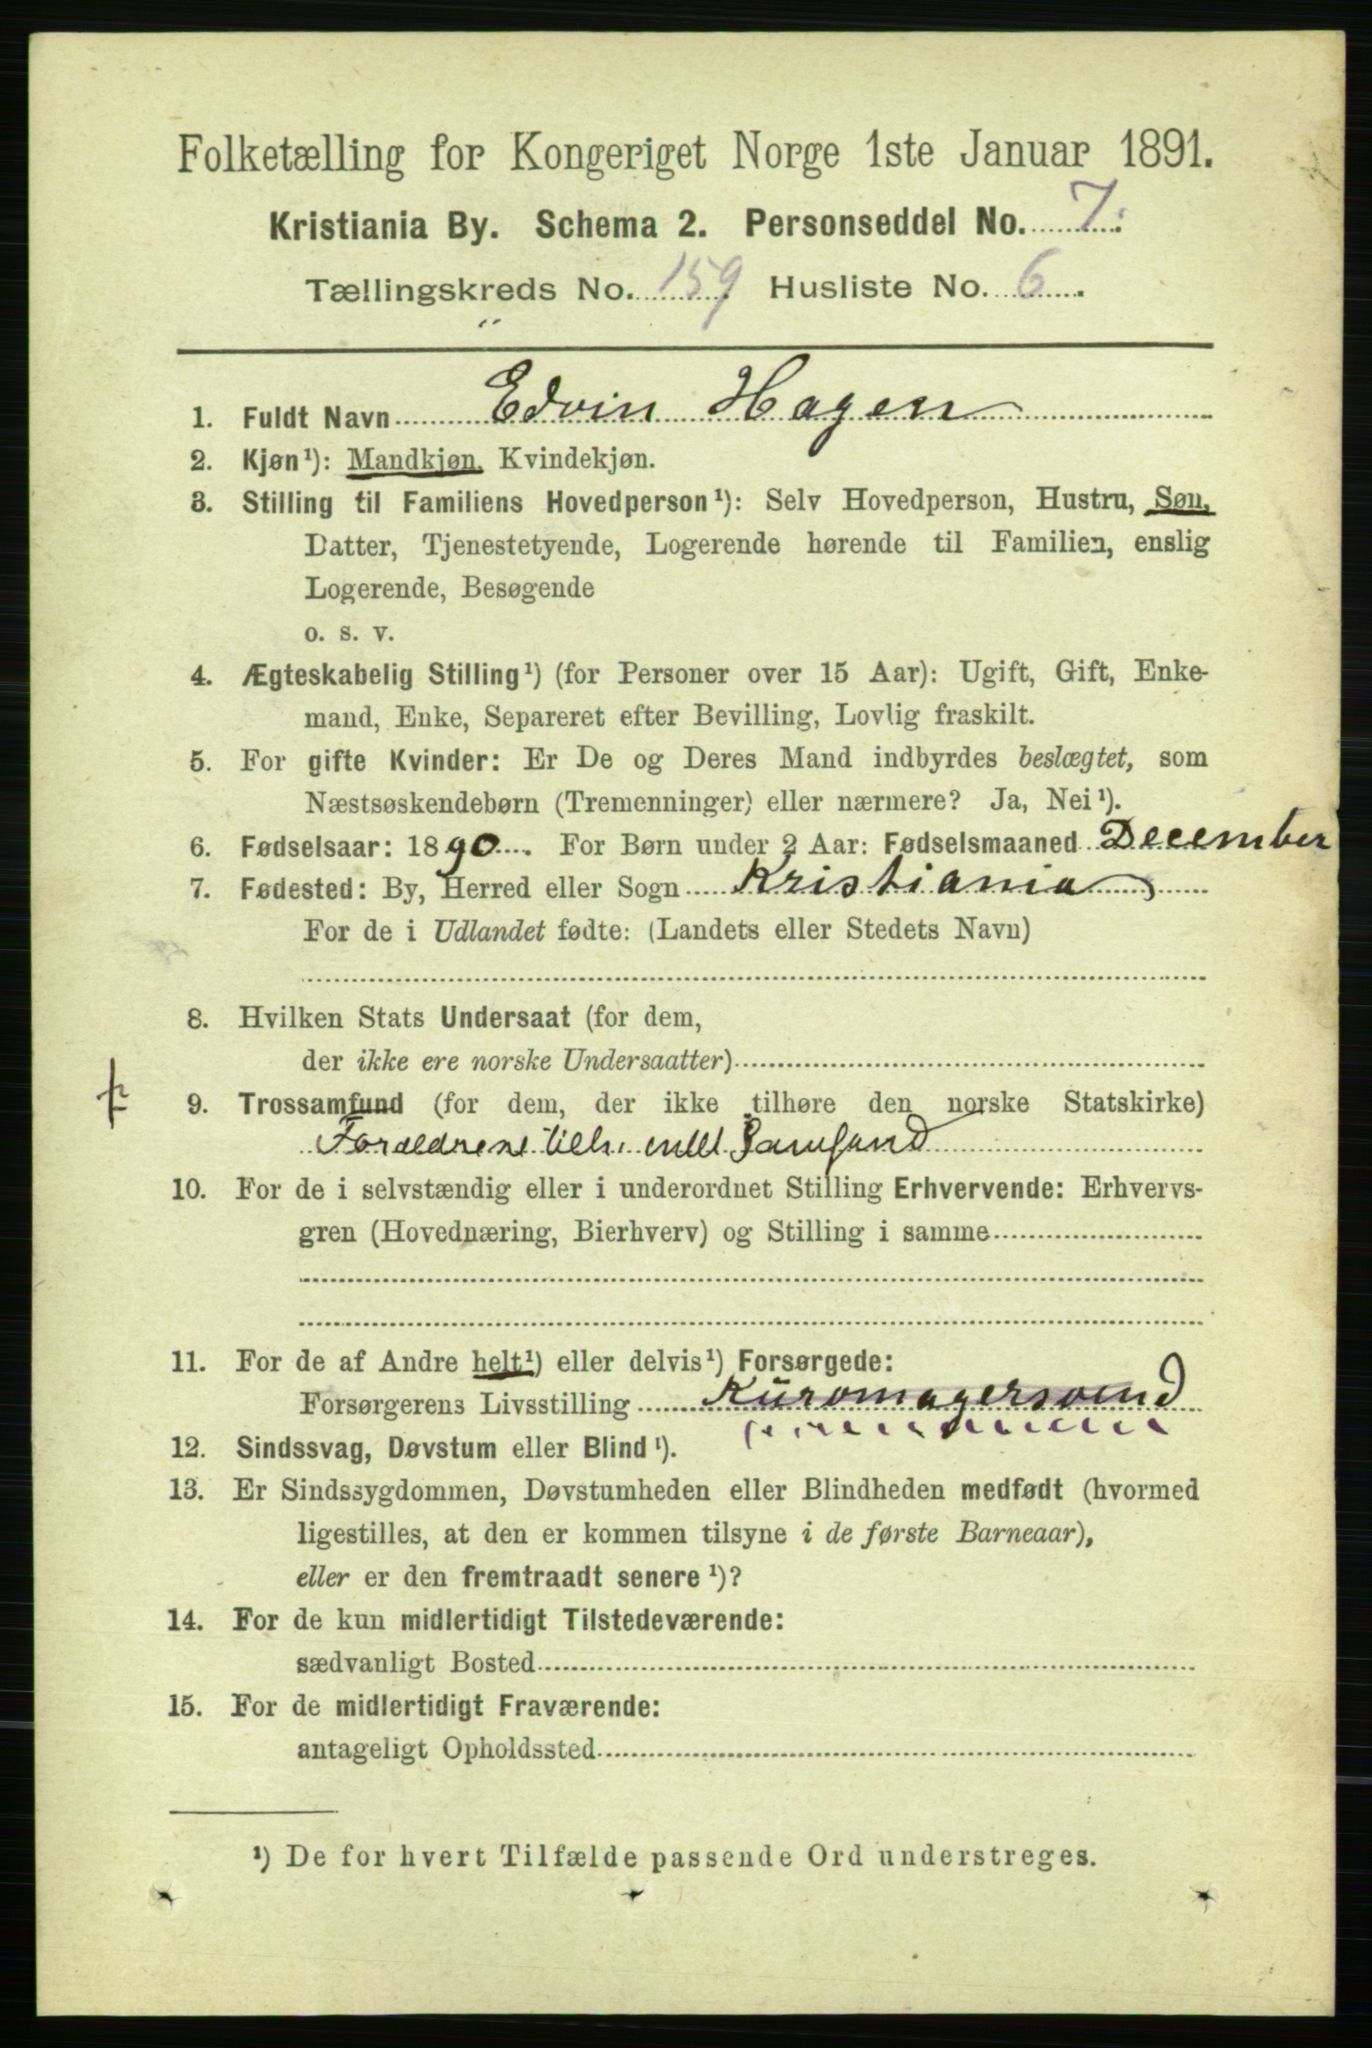 Folketælling for Kongeriget Norge 1ste Januar 1891.
Kristiania By. Schema 2. Personseddel No. 7.
Tællingskreds No. 159 Husliste No. 6.
1. Fuldt Navn Edvin Hagen
2. Kjøn¹): Mandkjøn, Kvindekjøn.
3. Stilling til Familiens Hovedperson¹): Selv Hovedperson, Hustru, Søn,
Datter, Tjenestetyende, Logerende hørende til Familien, enslig
Logerende, Besøgende
o. s. v.
4. Ægteskabelig Stilling¹) (for Personer over 15 Aar): Ugift, Gift, Enke-
mand, Enke, Separeret efter Bevilling, Lovlig fraskilt.
5. For gifte Kvinder: Er De og Deres Mand indbyrdes beslægtet, som
Næstsøskendebørn (Tremenninger) eller nærmere? Ja, Nei¹).
6. Fødselsaar: 1890. For Børn under 2 Aar: Fødselsmaaned December
7. Fødested: By, Herred eller Sogn Kristiania
For de i Udlandet fødte: (Landets eller Stedets Navn)
8. Hvilken Stats Undersaat (for dem,
der ikke ere norske Undersaatter)
9. Trossamfund (for dem, der ikke tilhøre den norske Statskirke)
Forældrene tilh. intet Samfund
10. For de i selvstændig eller i underordnet Stilling Erhvervende: Erhvervs-
gren (Hovednæring, Bierhverv) og Stilling i samme
11. For de af Andre helt¹) eller delvis¹) Forsørgede:
Forsørgerens Livsstilling Kurvmagersvend
12. Sindssvag, Døvstum eller Blind¹).
13. Er Sindssygdommen, Døvstumheden eller Blindheden medfødt (hvormed
ligestilles, at den er kommen tilsyne i de første Barneaar),
eller er den fremtraadt senere¹)?
14. For de kun midlertidigt Tilstedeværende:
sædvanligt Bosted
15. For de midlertidigt Fraværende:
antageligt Opholdssted
¹) De for hvert Tilfælde passende Ord understreges.